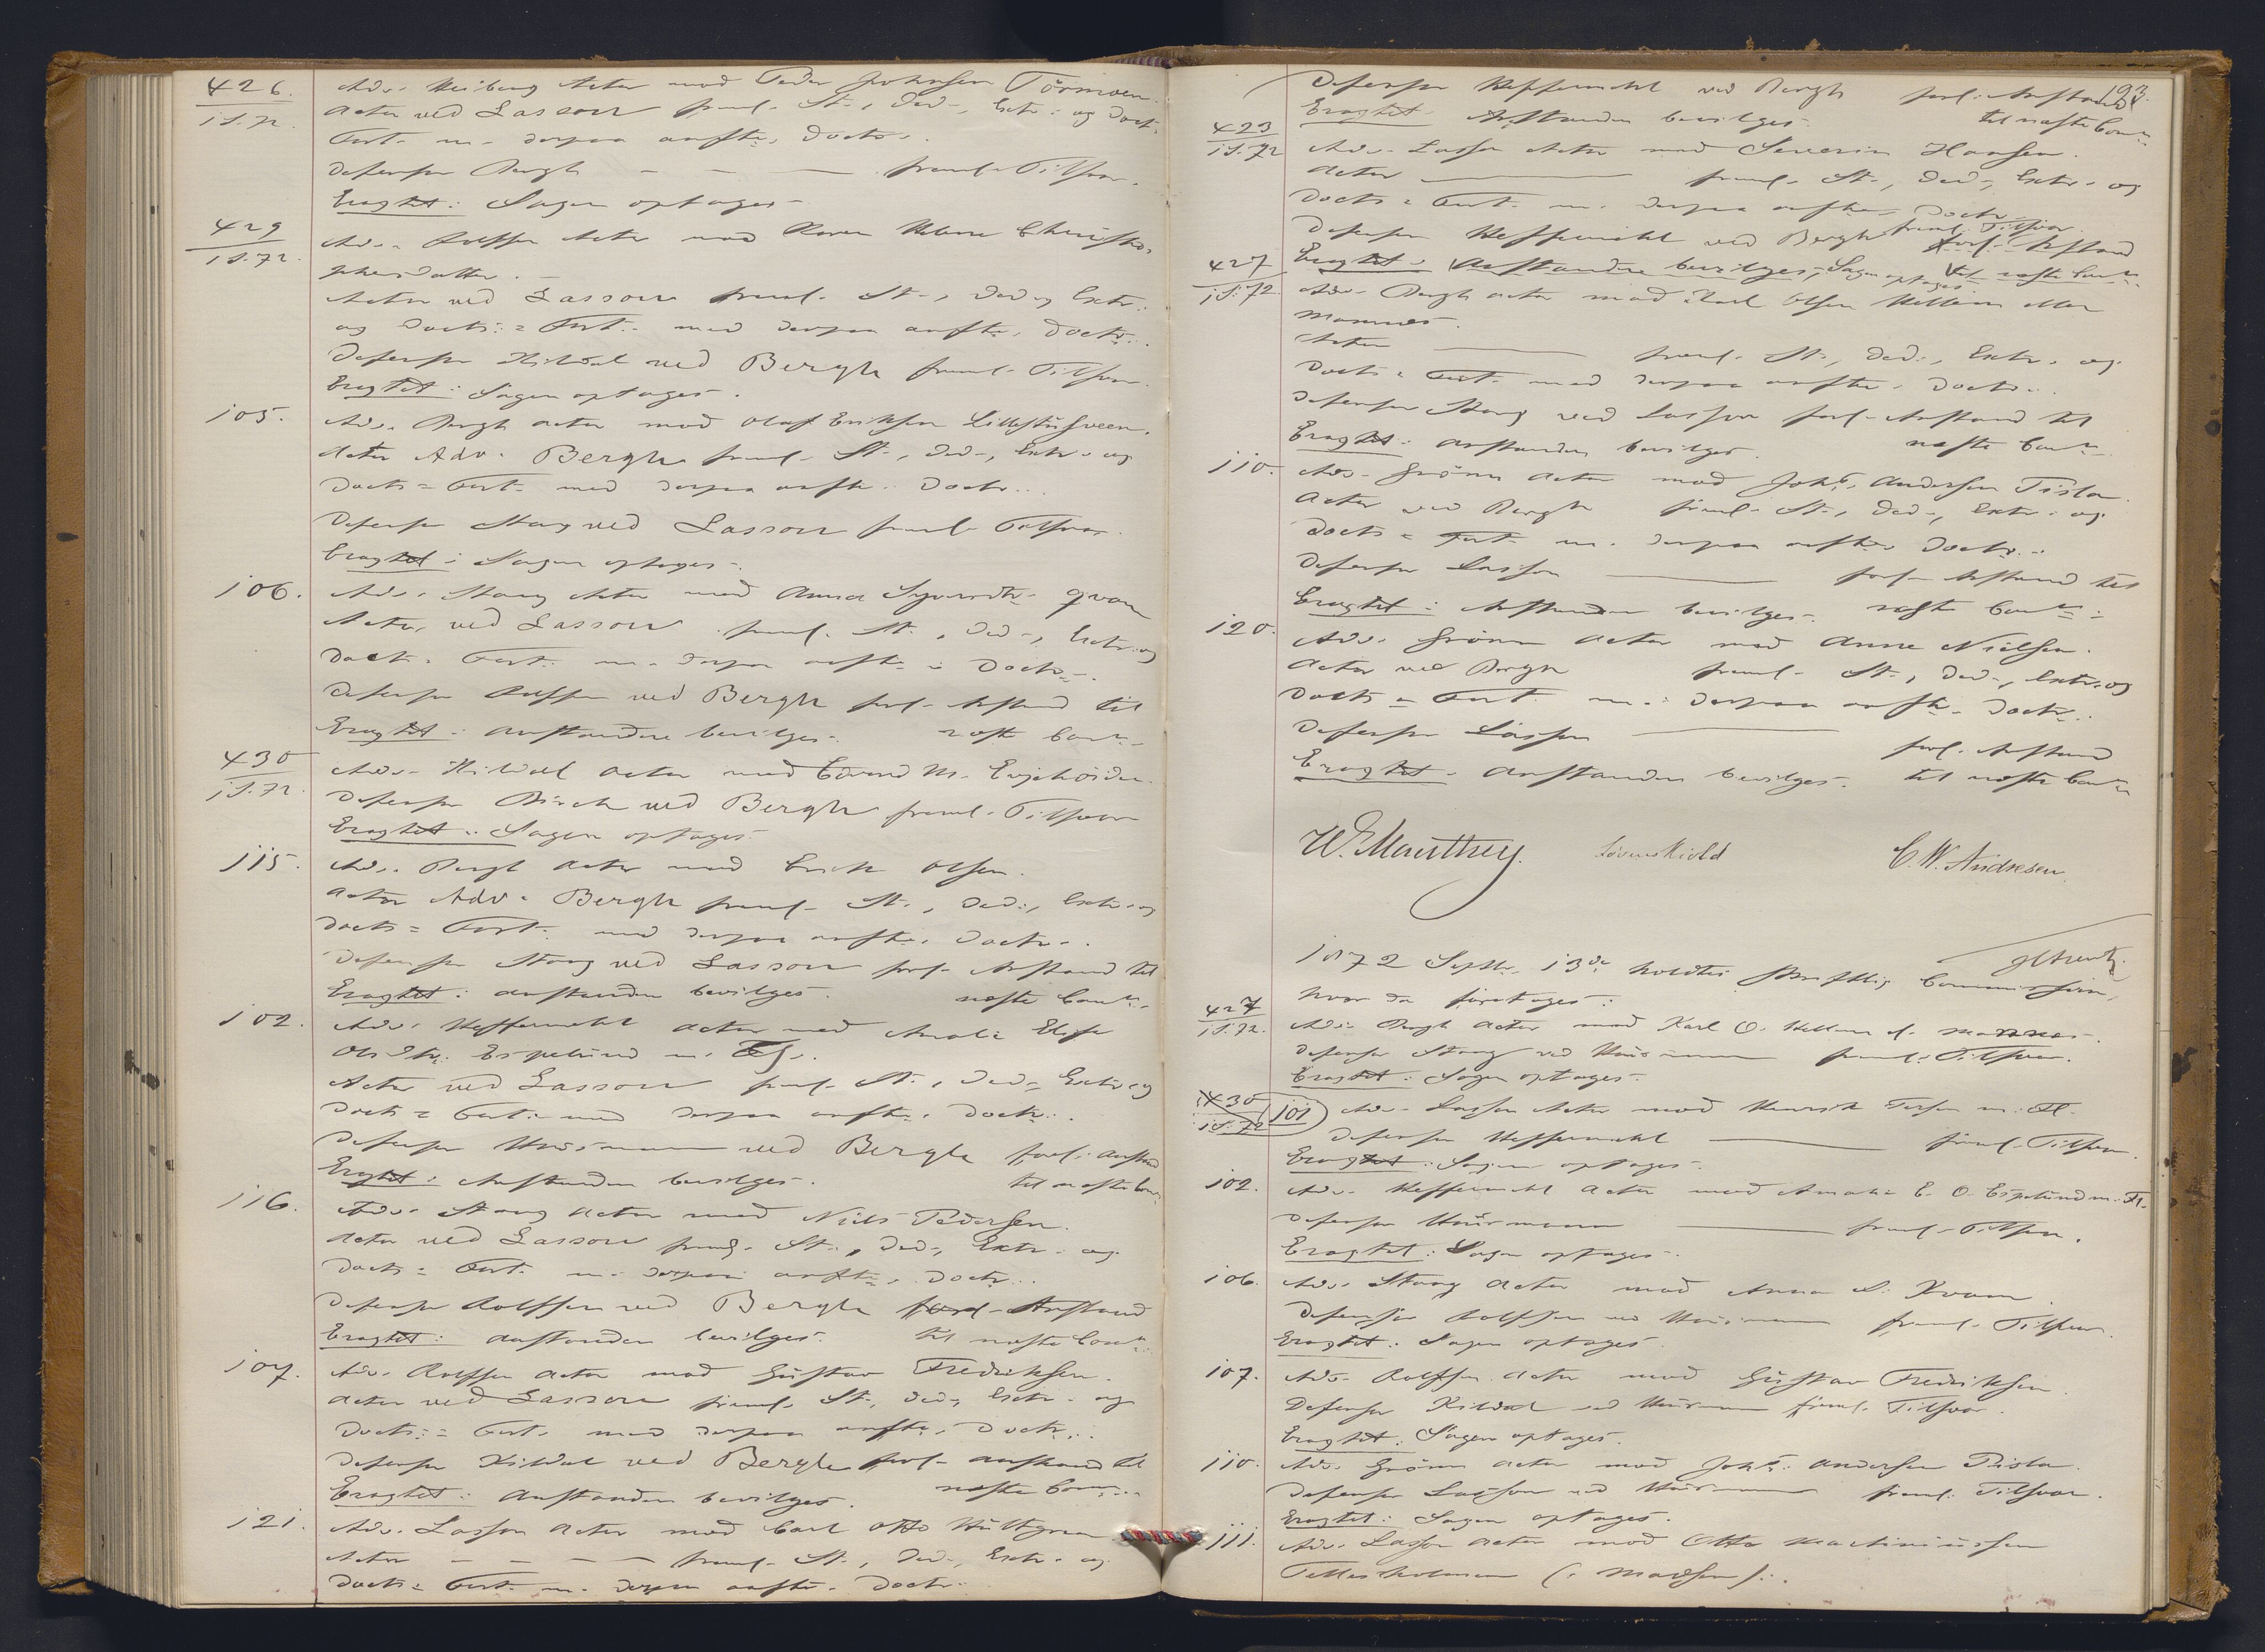 426.
1 S. 72
Adv. Heiberg Actor mod Peder Johnsen Törmoen.
Actor ved Lasson freml. St., Ded., Extr. og Doct.
Cert. m. derpaa anfte. Doctr.
Defensor Bergh — — — freml. Tilsvar.
Eragtet: Sagen optages.
429
1 S. 72.
Adv. Rolffsen Actor mod Karen Helene Christo
phersdatter.
Actor ved Lasson freml. St., Ded. og Extr.
og Docts: = Cert. med derpaa anfte. Doctr.
Defensor Kildal ved Bergh freml. Tilsvar.
Eragtet: Sagen optages.
105.
Adv. Bergh Actor mod Olaf Eriksen Lillestusveen.
Actor Adv. Bergh freml. St., Ded., Extr. og
Docts = Cert. med derpaa anfte. Doctr.
Defensor Stang ved Lasson freml. Tilsvar.
Eragtet: Sagen optages.
106.
Adv. Stang Actor mod Anna Syverdtr. Qvam
Actor ved Lasson freml. St., Ded., Extr. og
Docts = Cert. m. derpaa anfte. Doctr.
Defensor Rolffsen ved Bergh forl. Anstand til
Eragtet: Anstanden bevilges. næste Comn.
430
1 S. 72.
Adv. Kildal Actor mod Edvard M. Evjehöiden.
Defensor Birch ved Bergh freml. Tilsvar
Eragtet: Sagen optages.
115.
Adv. Bergh Actor mod Erich Olsen.
Actor Adv. Bergh freml. St., Ded., Extr. og
Docts = Cert. med derpaa anfte. Doctr.
Defensor Stang ved Lasson forl. Anstand til
Eragtet: Anstanden bevilges. næste Comn.
102.
Adv. Heffermehl Actor mod Amalie Elise
Olsdtr. Espelund m. Fl.
Actor ved Lasson freml. St., Ded., Extr. og
Docts = Cert. med derpaa anfte. Doctr.
Defensor ved Bergh forl. Anstand
Eragtet: Anstanden bevilges. til næste Comn.
116.
Adv. Stang Actor mod Niels Pedersen.
Actor ved Lasson freml. St., Ded., Extr. og
Docts = Cert. m. derpaa anfte. Doctr.
Defensor Rolffsen ved Bergh forl. Anstand
Eragtet: Anstanden bevilges. til næste Comn.
107.
Adv. Rolffsen Actor mod Gustav Fredriksen.
Actor ved Lasson freml. St., Ded., Extr. og
Docts = Cert. med derpaa anfte. Doctr.
Defensor Kildal ved Bergh forl. Anstand til
Eragtet: Anstanden bevilges. næste Comn.
121.
Adv. Lasson Actor mod Carl Otto Hultgreen
Actor — — — — freml. St., Ded., Extr. og
Docts = Cert. m. derpaa anfte. Doctr.
193.
Defensor Heffermehl ved Bergh forl. Anstand
Eragtet: Anstanden bevilges. til næste Comn.
423
1 S. 72
Adv. Lasson Actor mod Severin Hansen.
Actor — freml. St., Ded., Extr. og
Docts = Cert. m. derpaa anfte. Doctr.
Defensor Heffermehl ved Bergh freml. Tilsvar. forl. Anstand
Eragtet: Anstanden bevilges. Sagen optages. til næste Comn.
427
1 S. 72.
Adv. Bergh Actor mod Karl Olsen Hellum eller
Monnes.
Actor — freml. St., Ded., Extr. og
Docts = Cert. med derpaa anfte. Doctr.
Defensor Stang ved Lasson forl. Anstand til
Eragtet: Anstanden bevilges. næste Comn.
110.
Adv. Grönn Actor mod Johs. Andersen Tisla.
Actor ved Bergh freml. St., Ded., Extr. og
Docts = Cert. m. derpaa anfte. Doctr.
Defensor Lasson — forl. Anstand til
Eragtet: Anstanden bevilges. næste Comn.
120.
Adv. Grönn Actor mod Anne Nielsen.
Actor ved Bergh freml. St., Ded., Extr. og
Docts = Cert. m. derpaa anfte. Doctr.
Defensor Lasson — forl. Anstand
Eragtet: Anstanden bevilges. til næste Comn.
Løvenskiold C. W. Andresen.
1872 Septbr. 13de holdtes skriftlig Commission,
hvor da foretages:
427
1 S. 72.
Adv. Bergh Actor mod Karl O. Hellum el. Monnes.
Defensor Stang ved freml. Tilsvar.
Eragtet: Sagen optages.
430
1 S. 72
101
Adv. Lasson Actor mod Henrik m. Fl.
Defensor Heffermehl — freml. Tilsvar.
Eragtet: Sagen optages.
102.
Adv. Heffermehl Actor mod Amalie E. O. Espelund m. Fl.
Defensor — freml. Tilsvar.
Eragtet: Sagen optages.
106.
Adv. Stang Actor mod Anna S. Kvam.
Defensor Rolffsen ved freml. Tilsvar.
Eragtet: Sagen optages.
107.
Adv. Rolffsen Actor mod Gustav Fredriksen.
Defensor Kildal ved freml. Tilsvar.
Eragtet: Sagen optages.
110.
Adv. Grönn Actor mod Johs. Andersen Tisla.
Defensor Lasson ved freml. Tilsvar.
Eragtet: Sagen optages.
111.
Adv. Lasson Actor mod Otto Martiniussen